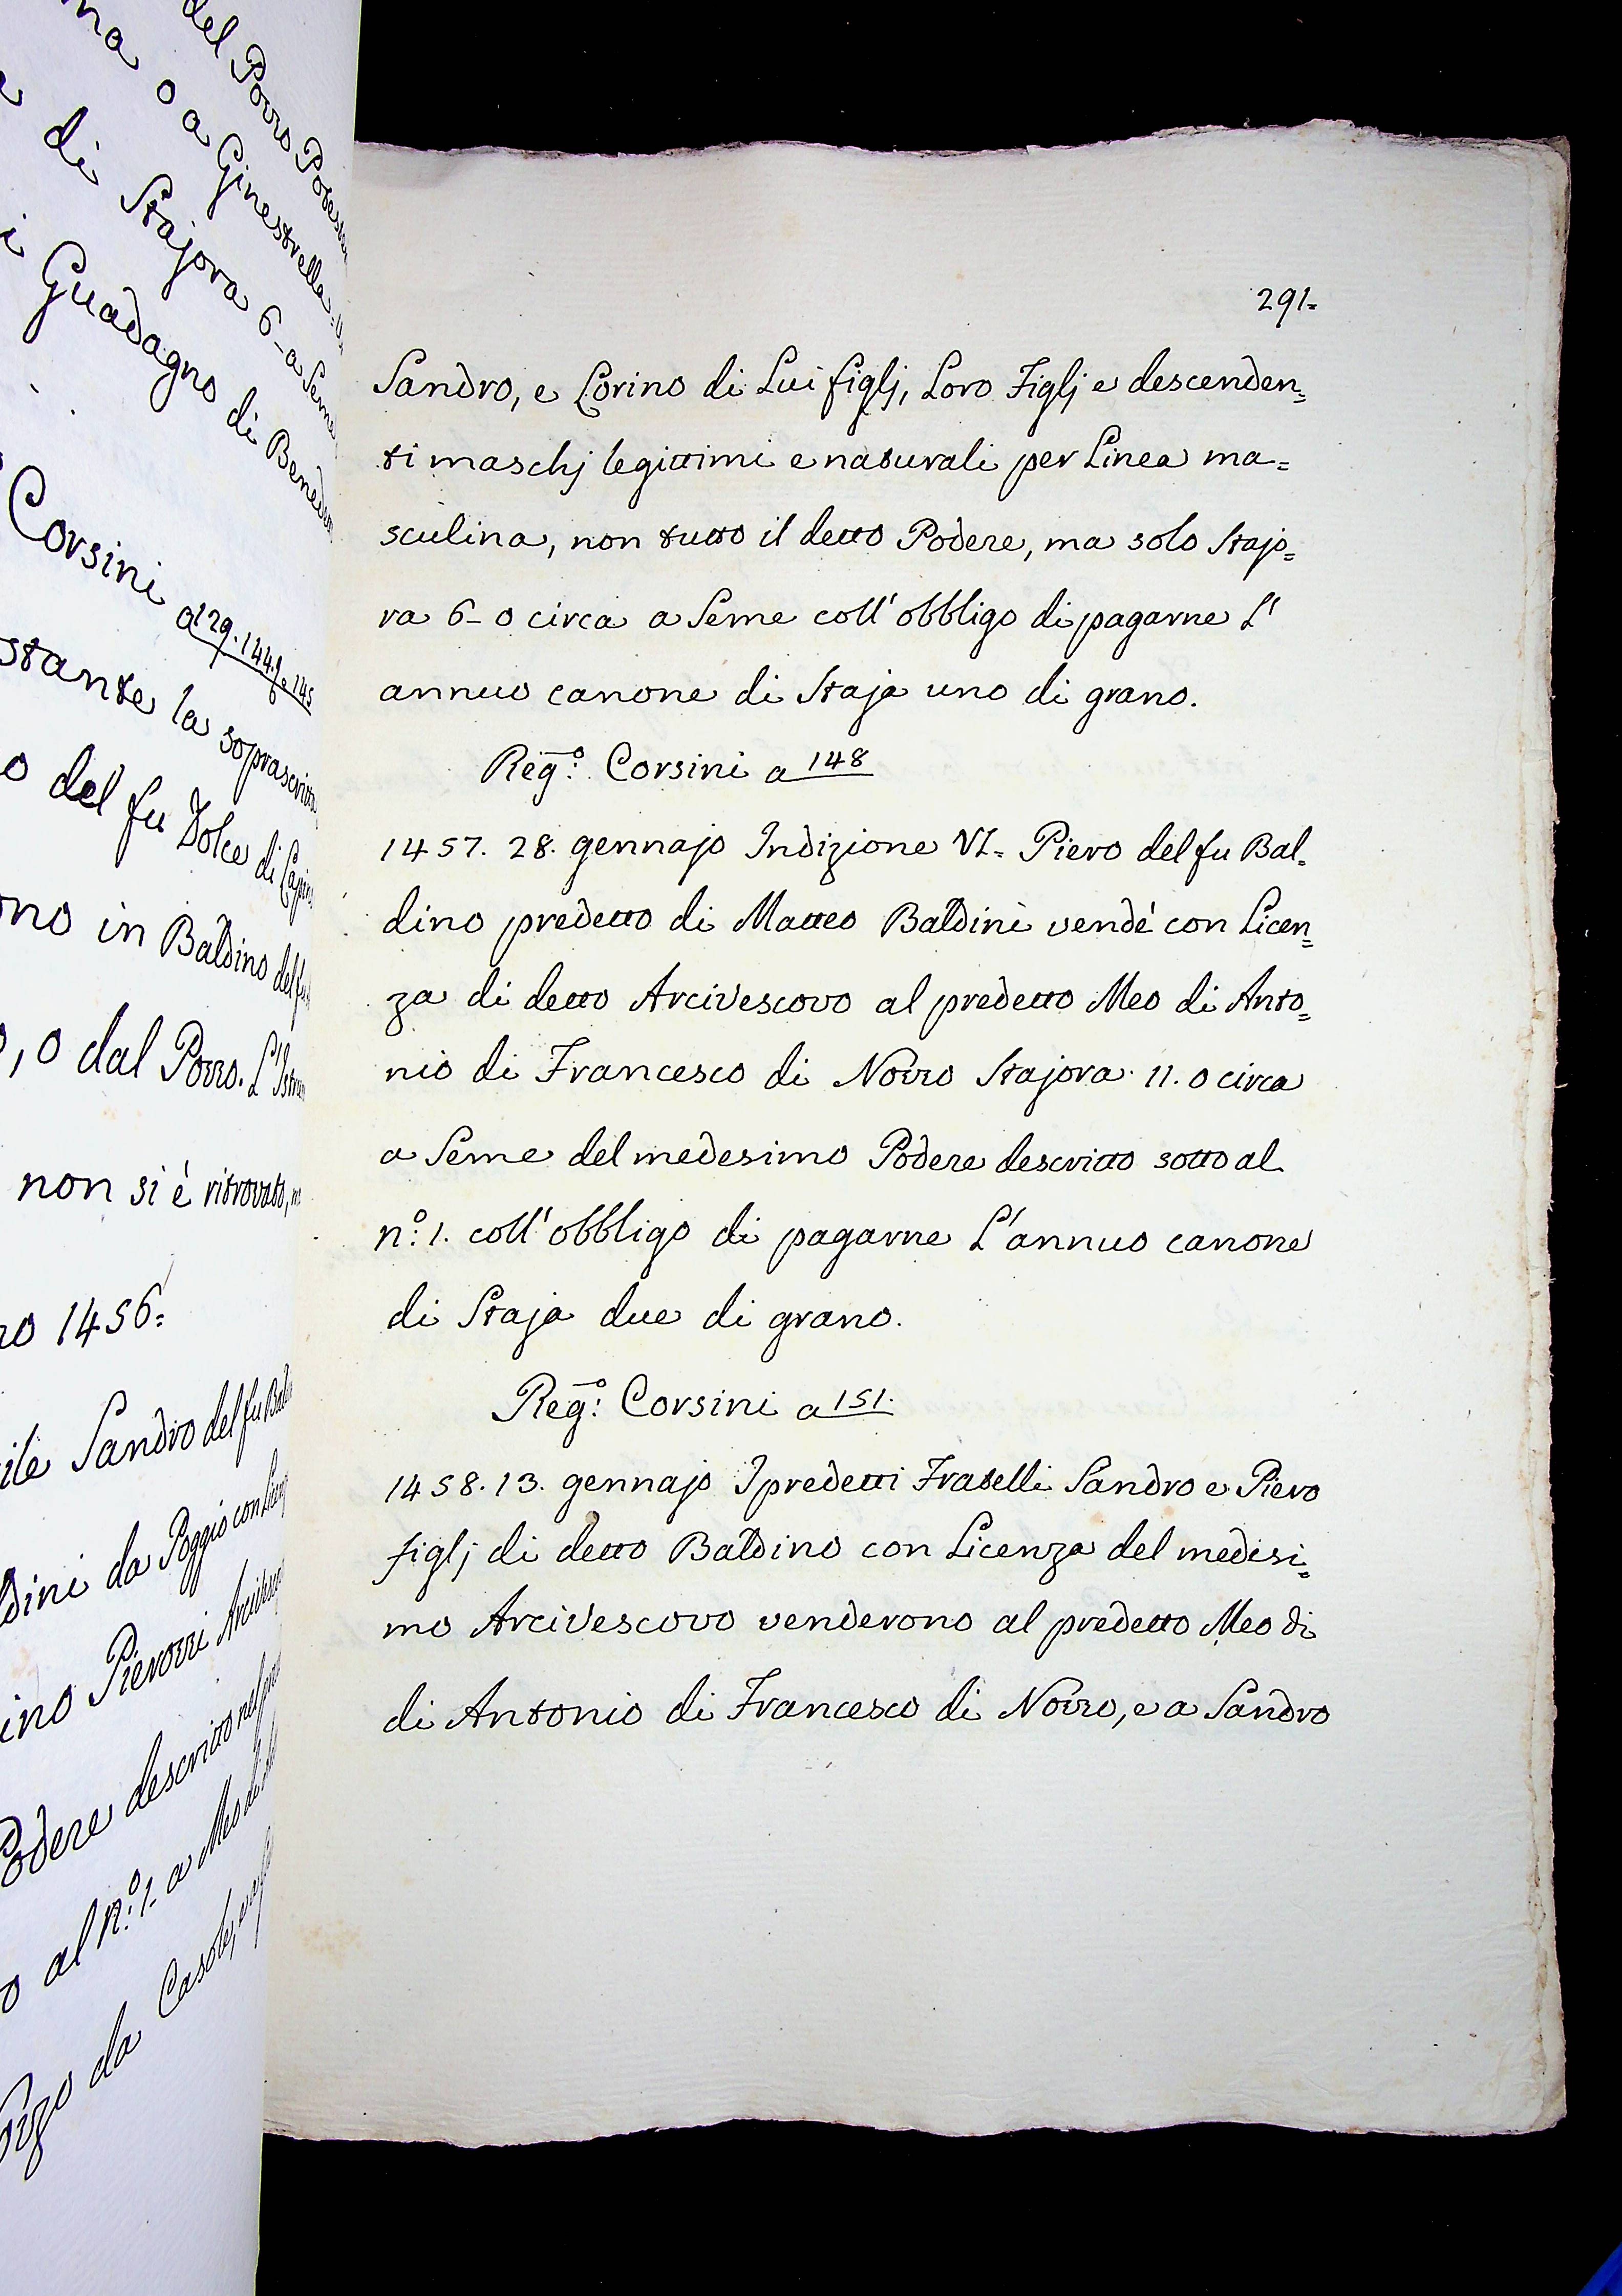 del Porro Potest
na o a Ginestrella
di Stajora 6 - a Seme
i Guadagno di Bened
Corsini a 129.144. e 145
stante la soprascritta
o del fu Dolce di
ono in Baldino del fu
o, o dal Porro. L'Istru
non si è ritrovato,
no 1456=
ile Sandro del fu Bald
dini da Poggio con Licenz
ino Pierozzi Arcivesco
Podere descritto nel
o al n.º 1- a Meo di
da Casole,
291=
Sandro, e Lorino di Lui figlj, Loro Figlj e descenden=
ti maschj legittimi e naturali per Linea ma=
sculina, non tutto il detto Podere, ma solo Stajo=
ra 6- o circa a Seme coll' obbligo di pagarne L'
annuo canone di Staja uno di grano.
Reg:º Corsini a 148
1457. 28. gennajo Indizione VI= Piero del fu Bal=
dino predetto di Matteo Baldini vendé con Licen=
za di detto Arcivescovo al predetto Meo di Anto=
nio di Francesco di Nozzo Stajora 11. o circa
a Seme del medesimo Podere descritto sotto al
n:º 1. coll' obbligo di pagarne L'annuo canone
di Staja due di grano.
Reg:º Corsini a 151.
1458. 13. gennajo I predetti Fratelli Sandro e Piero
figlj di detto Baldino con Licenza del medesi=
mo Arcivescovo venderono al predetto Meo di
di Antonio di Francesco di Nozzo, e a Sandro